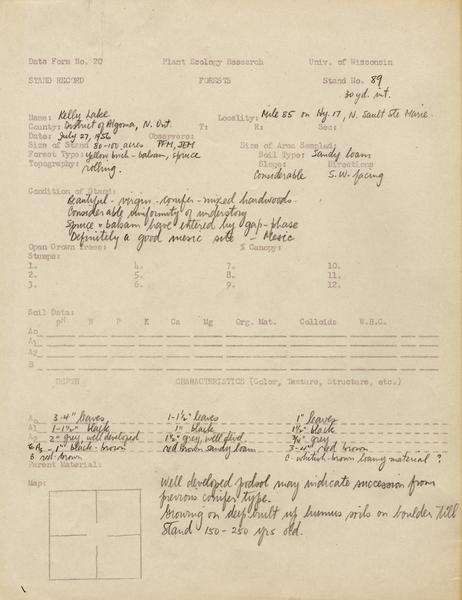 Data Form No. 20 Plant Ecology Research Univ. of Wisconsin
STAND RECORD FORESTS Stand No. 89
30 yd. int.
Name: Kelly Lake Locality: Mile 85 on Hy. 17, N. Sault Ste Marie
County: District of Algoma, N. Ont. T: R: Sec:
Date: July 27, 1956 Observers:
Size of Stand 80-100 acres PFM, JEM Size of Area Sampled:
Forest Type: Yellow birch - balsam, spruce Soil Type: Sandy loam
Topography: rolling. Slope: Direction:
Considerable S.W. facing
Condition of Stand:
Beautiful - virgin - conifer - mixed hardwoods.
Considerable uniformity of understory
Spruce & balsam have entered by gap-phase
Definitely a good mesic site - Mesic
Open Grown Trees: % Canopy:
Stumps:
1. 4. 7. 10.
2. 5. 8. 11.
3. 6. 9. 12.
Soil Data:
pH N P K Ca Mg Org. Mat. Colloids W.H.C.
Ao
A1
A2
B
DEPTH CHARACTERISTICS (Color, Texture, Structure, etc.)
Ao 3-4" leaves 1-1½" leaves 1" leaves
A1 1-1½" black 1" black 1½" black
A2 2" grey, well developed 1½" grey, well dvld ¾" grey
1" black-brown red brown sandy loam 3-4" red brown
B red-brown C- whitish-brown loamy material ?
Parent Material:
Map: Well developed podsol may indicate succession from
previous conifer type.
Growing on deep built up humus soils on boulder till
Stand 150-250 yrs old.